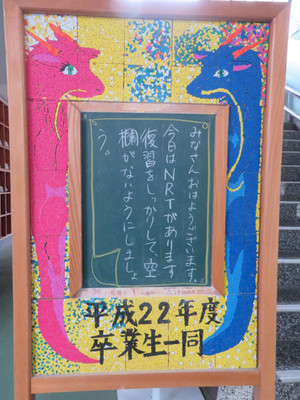 みなさんおはようございます。
今日はNRTがあります
復習をしっかりして空
欄がないようにしましょ
う。
平成22年度
卒業生一同